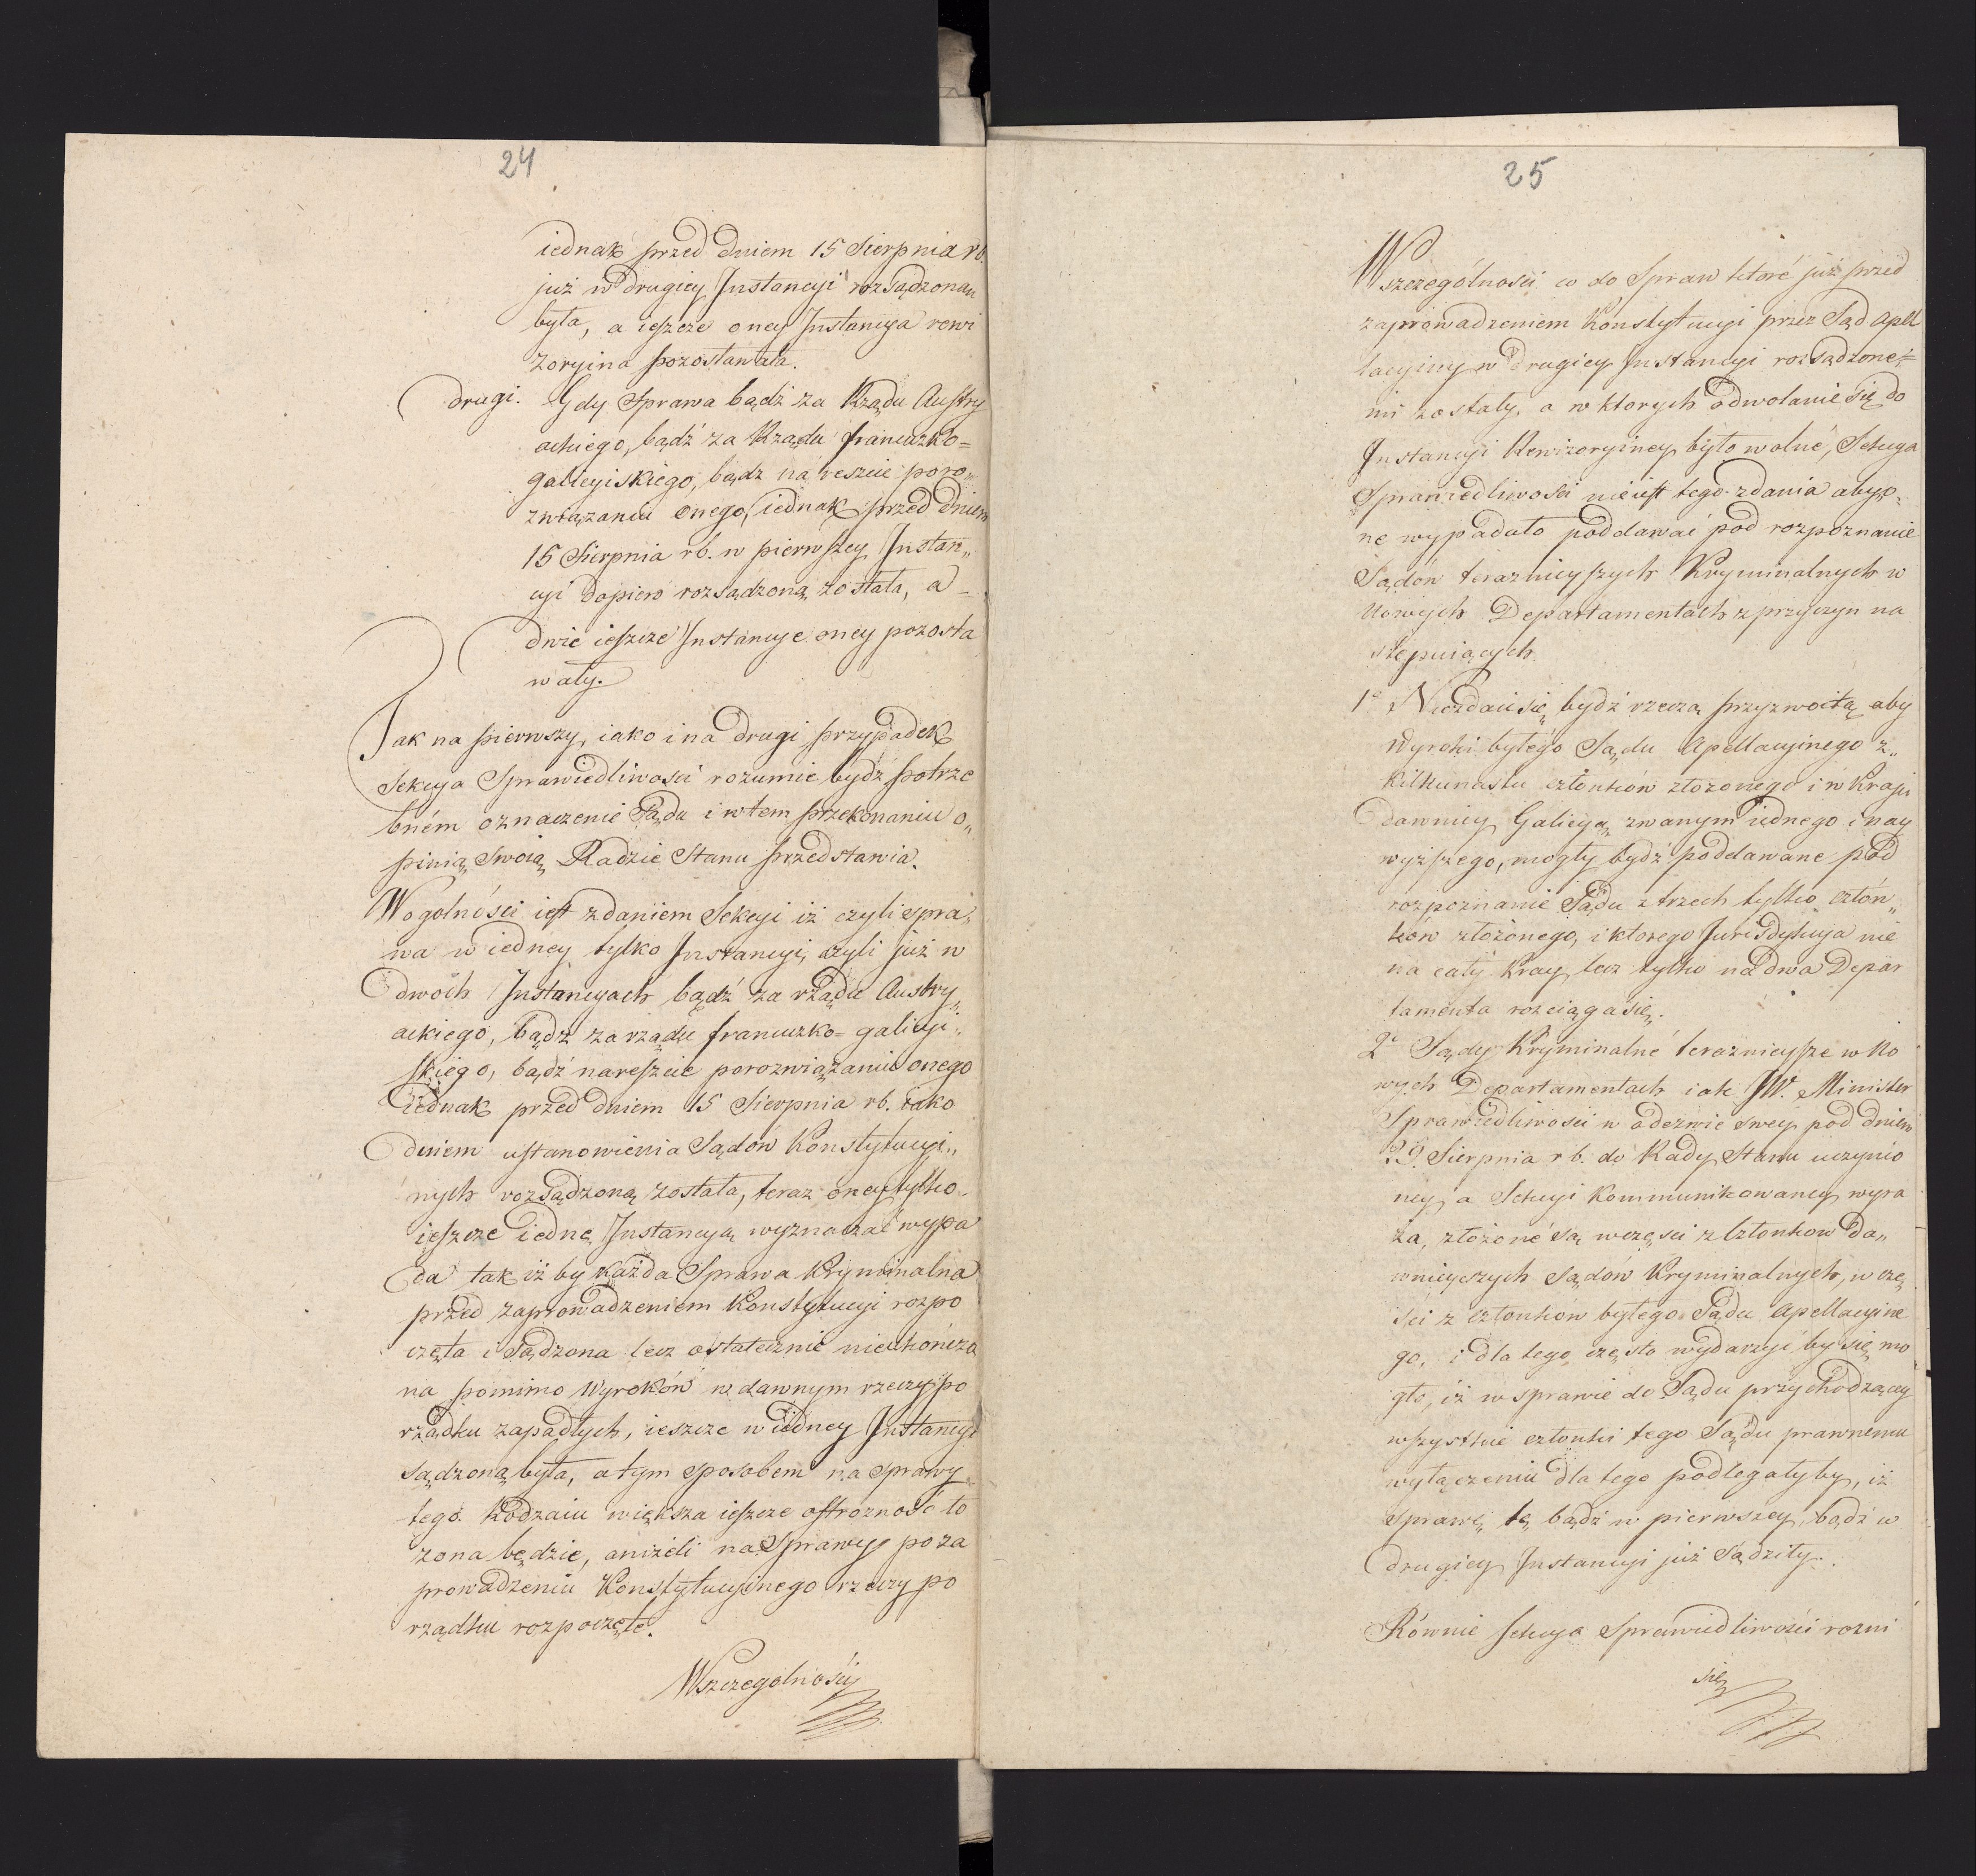 24
iednak przed dniem 15 Sierpnia rb.
już w drugiey Instancyi rozsądzoną
była, a ieszcze oney Instancya rewi
zoryina pozostawała.
drugi. Gdy Sprawa bądź za Rządu Austry
ackiego, bądź za Rządu francuzko=
galicyiskiego, bądz na reszcie poro„
związaniu onego, iednak przed dniem
15 Sierpnia rb. w pierwszey Instan„
cyi dopiero rozsądzoną została, a
dwie ieszcze Instancye oney pozosta
wały.
Jak na pierwszy, iako i na drugi przypadek
Sekcya Sprawiedliwości rozumie bydź potrze
bném oznaczenie Sądu i w tem przekonaniu o„
pinią swoią Radzie Stanu przedstawia.
Wogolności iest zdaniem Sekcyi iż czyli spra„
wa w iedney tylko Instancyi, czyli już w
dwóch Instancyach bądź za rządu Austry„
ackiego, bądz za rządu francuzko=galicyi„
skiego, bądź nareszcie porozwiązaniu onego
iednak przed dniem 15 Sierpnia rb. iako
dniem ustanowienia Sądów Konstytucyi„
nych rozsądzoną została, teraz oney tylko
ieszcze iednę Instancyą wyznaczać wypa
da tak iż by każda Sprawa Kryminalna
przed zaprowadzeniem Konstytucyi rozpo
częta i Sądzona lecz ostatecznie nieukończo
na pomimo Wyroków w dawnym rzeczy po
rządku zapadłych, ieszcze w iedney Instancyi
sądzoną była, a tym sposobem na sprawy
tego Rodzaiu większa ieszcze ostrożność ło
zona będzie, aniżeli na Sprawy poza
prowadzeniu Konstytucyinego rzeczy po
rządku rozpoczęte.
Wszczególności
25
Wszczególności co do Spraw które już przed
zaprowadzeniem Konstytucyi przez Sąd Apel
lacyiny w drugiey Instancyi rozsądzone=
mi zostały, a w ktorych odwołanie się do
Instancyi Rewizoryiney było wolné, Sekcya
Sprawiedliwości nie iest tego zdania aby o„
ne wypadało poddawać pod rozpoznanie
Sądów teraznieyszych Kryminalnych w
Nowych Departamentach z przyczyn na
stępuiących
1º Niezdaie się bydź rzeczą przyzwoitą aby
Wyroki byłego Sądu Apellacyinego z„
kilkunastu członków złożonego i w Kraju
dawniey Galicyą zwanym iednego i nay
wyższego, mogły bydź poddawane pod
rozpoznanie Sądu z trzech tylko człon„
ków złożonego, i ktorego Jurisdykcya nie
na cały Kray, lecz tylko na dwa Depar
tamenta rozciąga się.
2º Sądy Kryminalné teraznieysze w No
wych Departamentach iak JW. Minister
Sprawiedliwosci w odezwie swey pod dniem
29. Sierpnia rb. do Rady Stanu uczynio
ney, a Sekcyi Kommunikowaney wyra
ża, złożoné są wczęsci z Członkow da„
wnieyszych Sądów Kryminalnych, w czę
ści z członkow byłego Sądu Apellacyine
go, i dla tego często wydarzyć by się mo
gło, iż w sprawie do Sądu przychodzącey
wszystkie członki tego Sądu prawnemu
wyłączeniu dla tego podlegały by, iż
sprawę tę bądź w pierwszey, bądź w
drugiey Instancyi już Sądziły.
Równie Sekcya Sprawiedliwości rozni
się